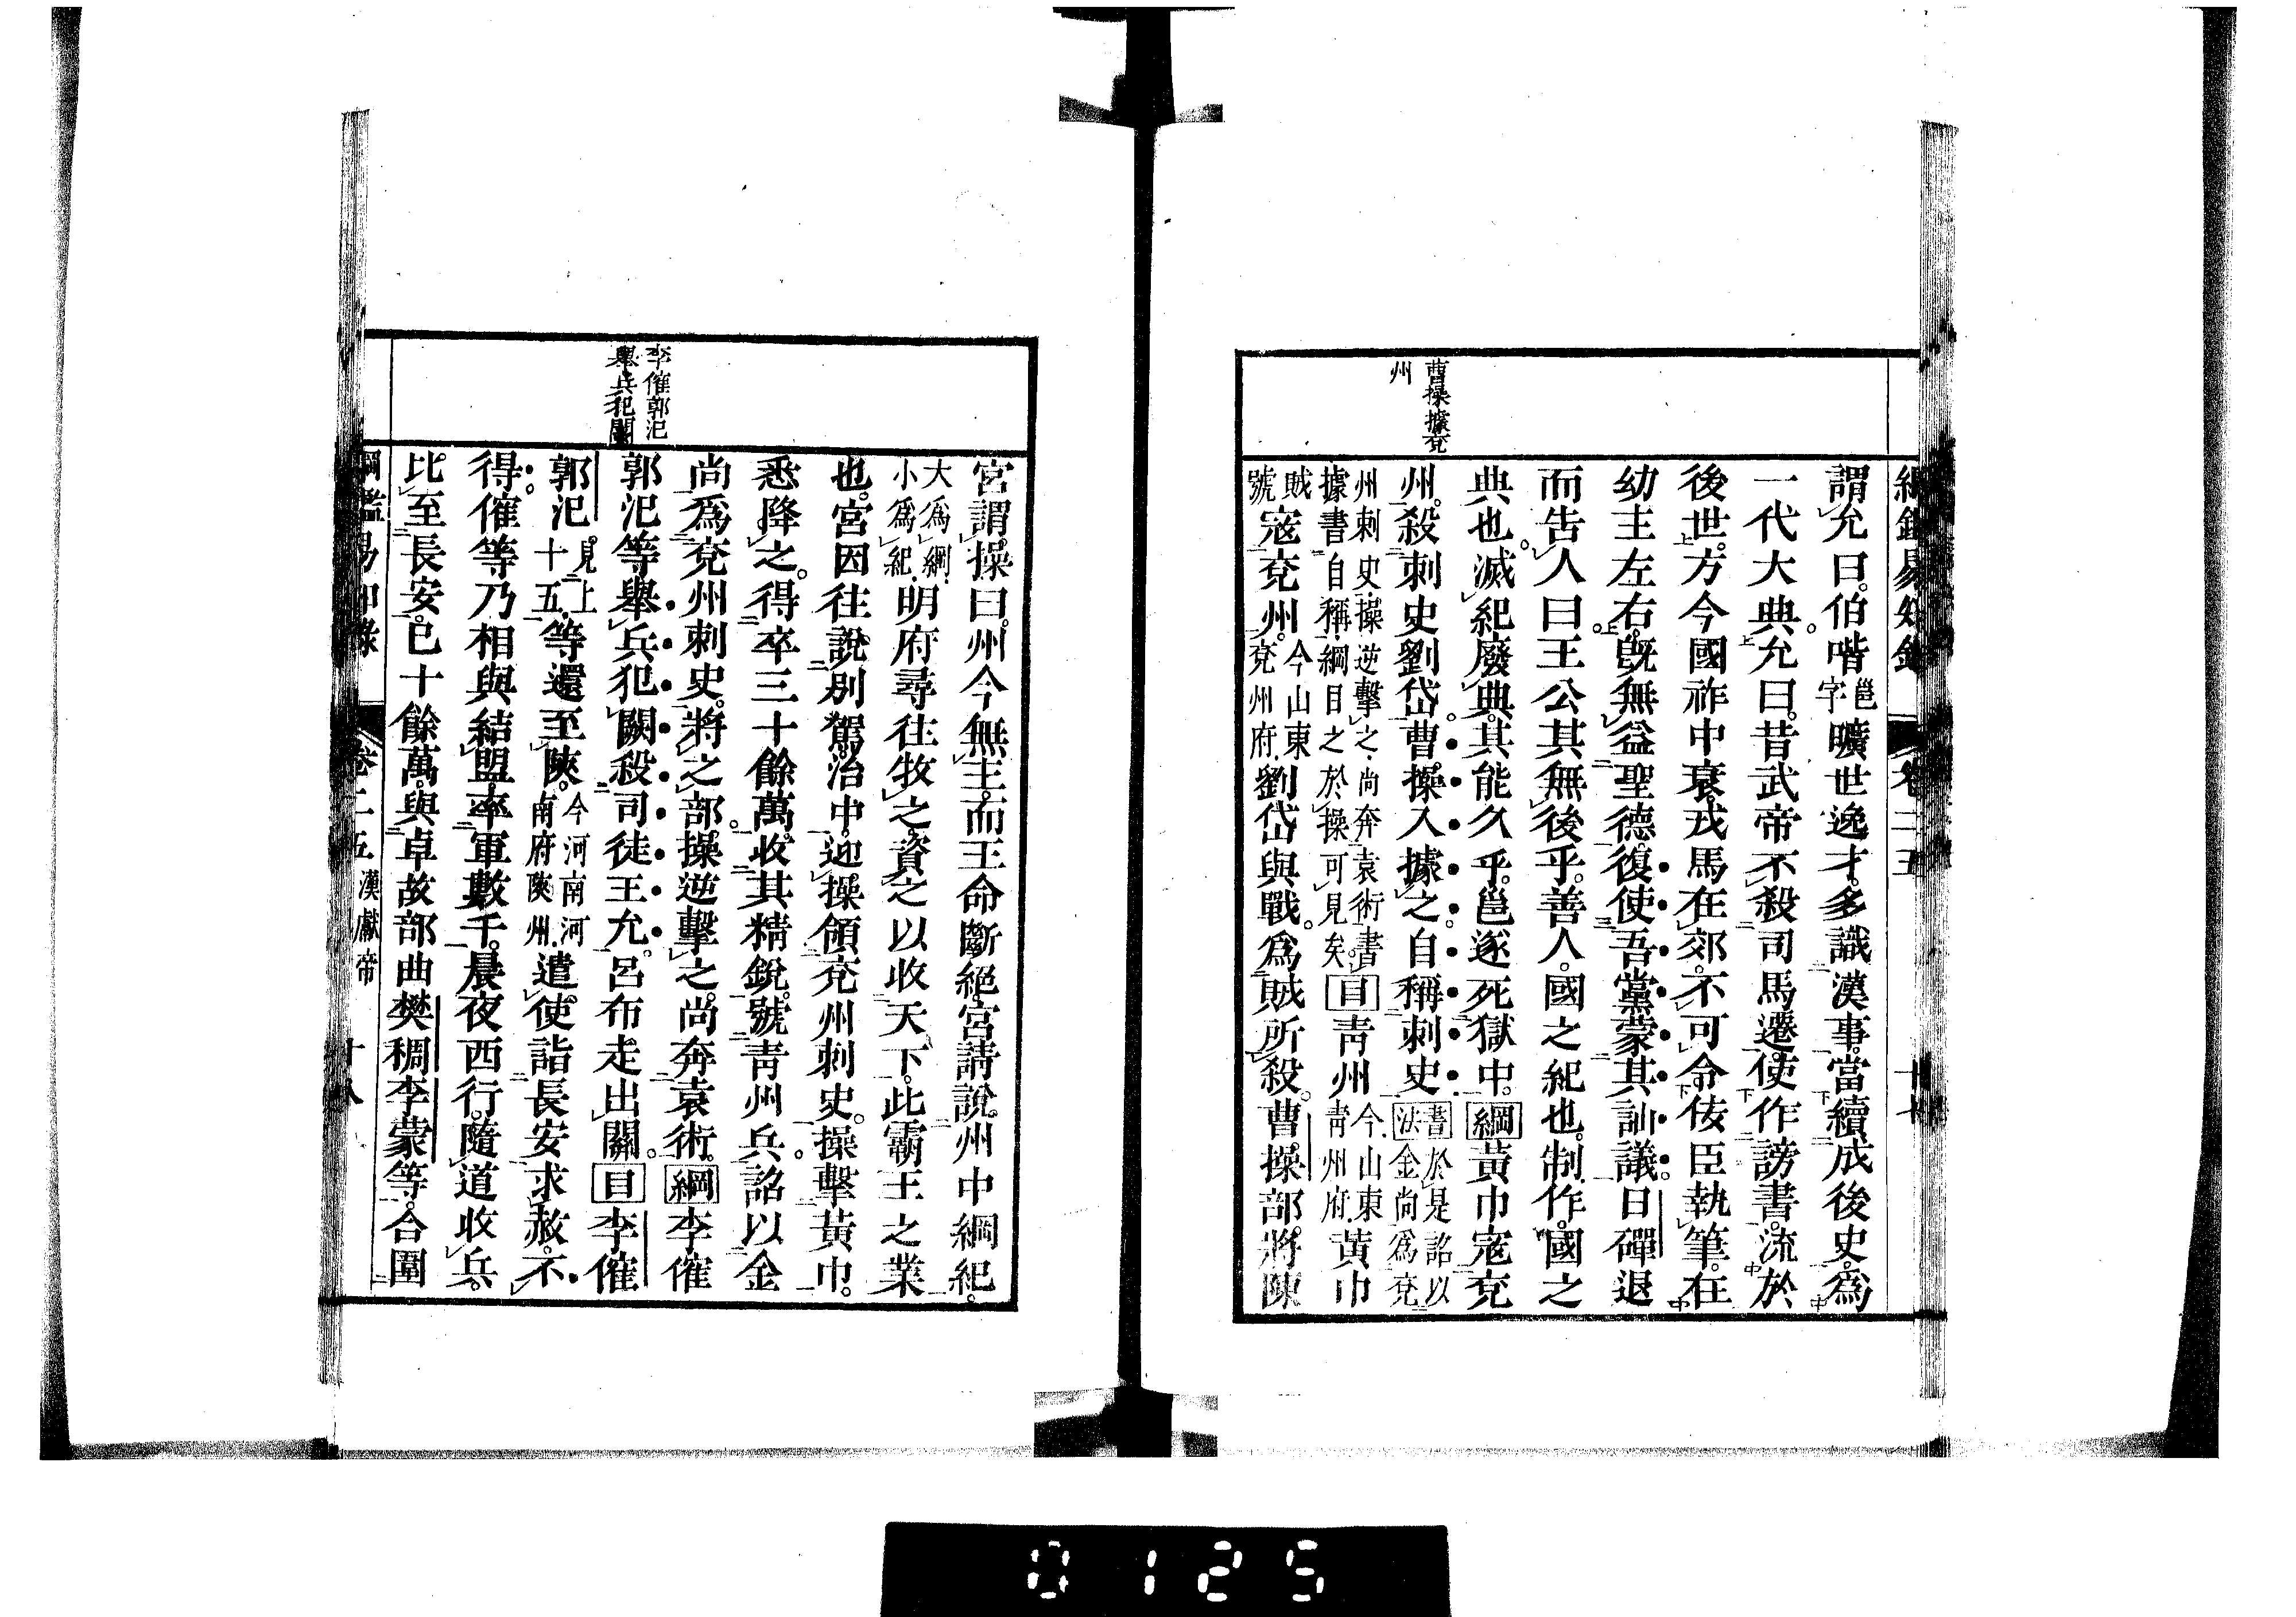 綱鑑易知錄 卷二五 十七
曹操據兗
州
謂允曰。伯喈邕字曠世逸才。多識漢事。當續成後史。爲
一代大典。允曰。昔武帝不殺司馬遷。使作謗書。流於
後世。方今國祚中衰。戎馬在郊。不可令佞臣執筆。在
幼主左右。旣無益聖德。復使吾黨蒙其訕議。日磾退
而告人曰。王公其無後乎。善人。國之紀也。制作。國之
典也。滅紀廢典。其能久乎。邕遂死獄中。綱黃巾寇兗
州。殺刺史劉岱。曹操入據之。自稱刺史書於是詔以法金尚爲兗
州刺史。操逆擊之。尚奔袁術。書據書自稱。綱目之於操可見矣。目青州今山東青州府。黃巾
寇兗州。今山東兗州府。劉岱與戰。爲賊所殺。曹操部將陳
賊號
宮謂操曰。州今無主。而王命斷絕。宮請說州中綱紀。
大爲綱。小爲紀。明府尋往牧之。資之以收天下。此霸王之業
也。宮因往說別駕治中。迎操領兗州刺史。操擊黃巾。
悉降之。得卒三十餘萬。收其精銳。號青州兵。詔以金
尚爲兗州刺史。將之部。操逆擊之。尚奔袁術。綱李傕
郭汜等舉兵犯闕。殺司徒王允。呂布走出關。目李傕
郭汜見上十五。等還至陝。今河南河南府陝州。遣使詣長安求赦。不
得。傕等乃相與結盟。率軍數千。晨夜西行。隨道收兵。
比至長安。已十餘萬。與卓故部曲樊稠李蒙等。合圍
李傕郭汜
舉兵犯闕
綱鑑易知錄 卷二五 漢獻帝 十八
0125